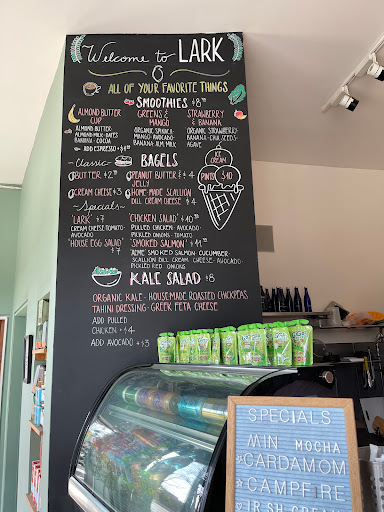 Welcome to LARK
ALL OF YOUR FAVORITE THINGS
SMOOTHIES
ALMOND BUTTER CUP
ALMOND BUTTER
ALMOND MILK · DATES
BANANA · COCOA
ADD ESPRESSO
GREENS & MANGO
ORGANIC SPINACH
MANGO · AVOCADO
BANANA · ALM. MILK
STRAWBERRY & BANANA
ORGANIC STRAWBERRY
BANANA · CHIA SEEDS
AGAVE
ICE CREAM
PINTS $10
Classic BAGELS
BUTTER
PEANUT BUTTER & JELLY
CREAM CHEESE
HOME MADE SCALLION
DILL CREAM CHEESE
Specials
'LARK' $7
CREAM CHEESE · TOMATO
AVOCADO
'HOUSE EGG SALAD'
$7
'CHICKEN SALAD'
PULLED CHICKEN · AVOCADO
PICKLED ONIONS · TOMATO
'SMOKED SALMON'
'ACME' SMOKED SALMON · CUCUMBER
SCALLION DILL CREAM CHEESE · AVOCADO
PICKLED RED ONIONS
KALE SALAD $8
ORGANIC KALE · HOUSEMADE ROASTED CHICKPEAS
TAHINI DRESSING · GREEK FETA CHEESE
ADD PULLED
CHICKEN + $4
ADD AVOCADO + $3
SPECIALS
MIN MOCHA
CARDAMOM
CAMPFIRE